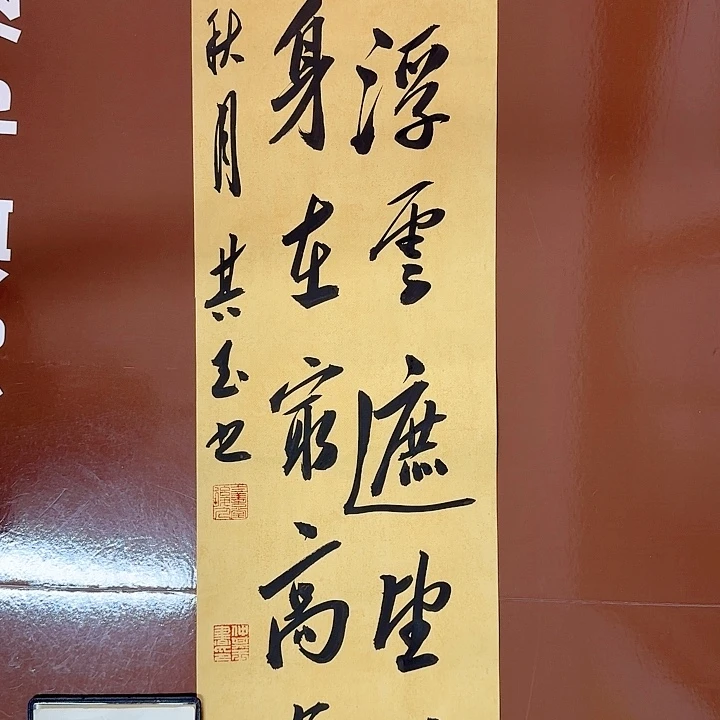 浮雲遮望
身在最高
秋月其玉书